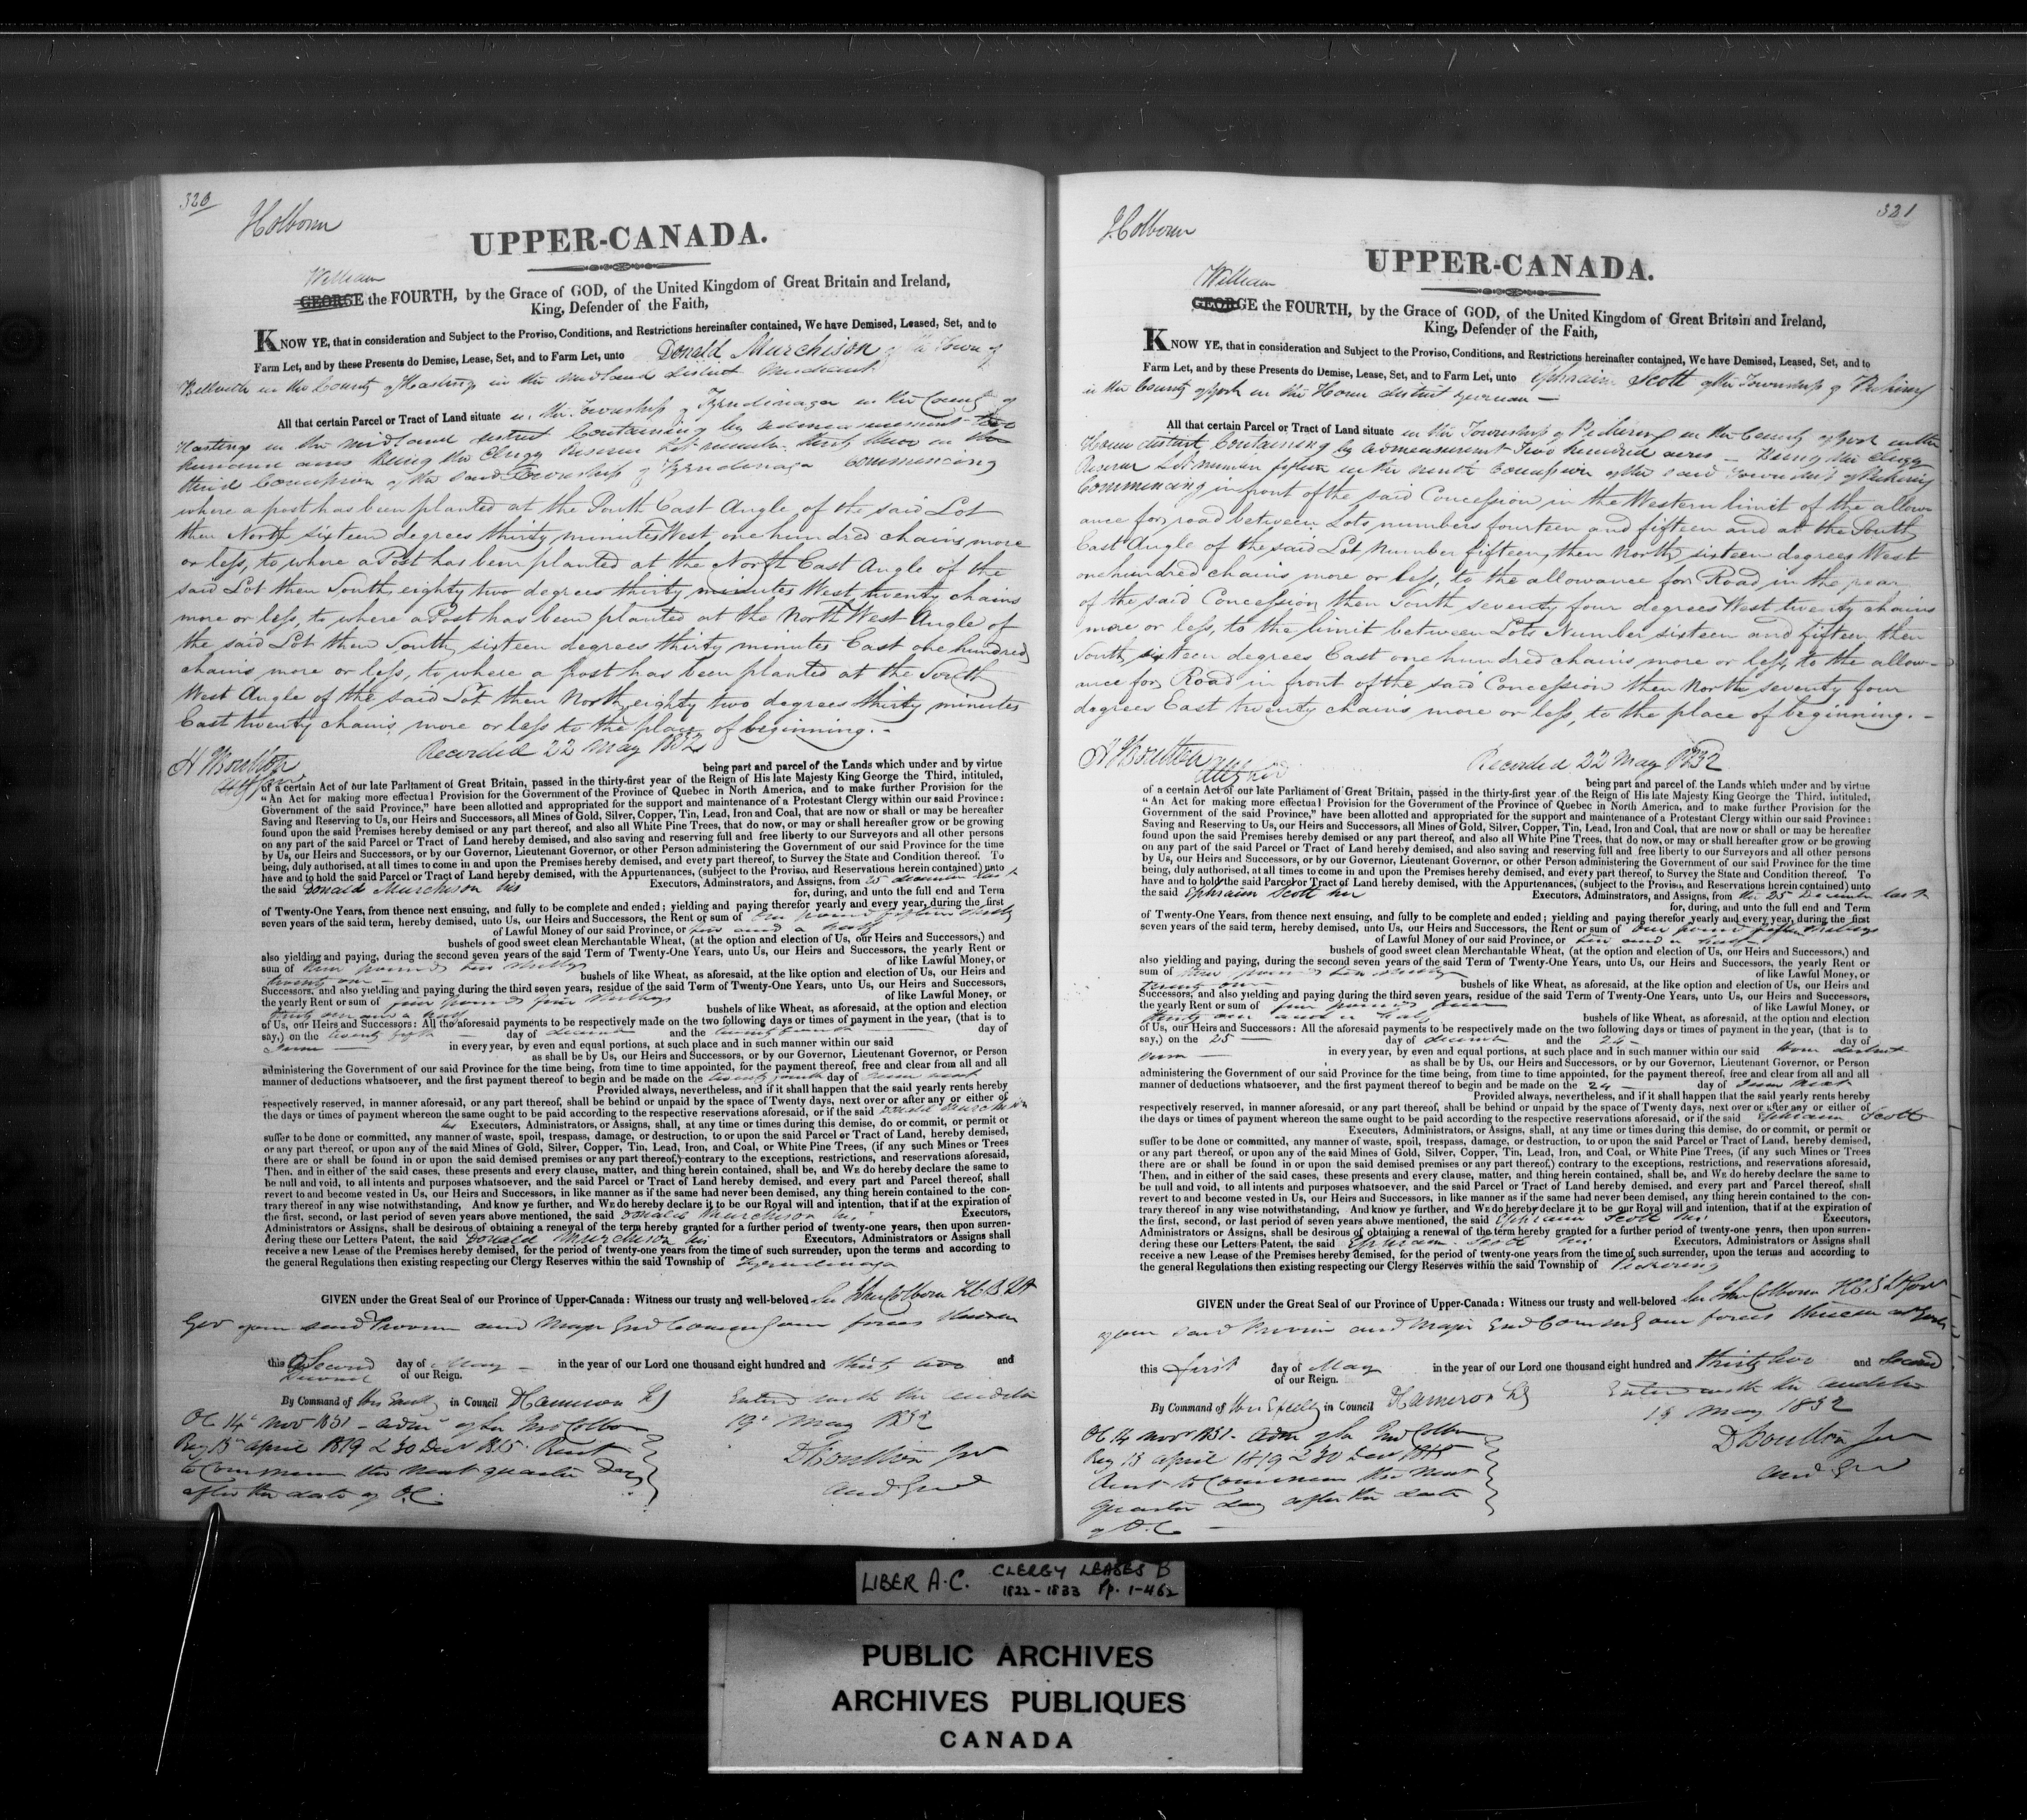 320
Holborn
UPPER-CANADA.
William
GEORGE the FOURTH, by the Grace of GOD, of the United Kingdom of Great Britain and Ireland,
King, Defender of the Faith,
KNOW YE, that in consideration and Subject to the Proviso, Conditions, and Restrictions hereinafter contained, We have Demised, Leased, Set, and to
Farm Let, and by these Presents do Demise, Lease, Set, and to Farm Let, unto Donald Murchison of the Town of
Bellville in the County of Hastings in the Midland district Merchant.
All that certain Parcel or Tract of Land situate in the Township of Tyendinaga in the County of
Hastings in the Midland district Containing by admeasurement two
hundred acres being the Clergy Reserve Lot number thirty three in the
third Concession of the said Township of Tyendinaga Commencing
where a post has been planted at the South East Angle of the said Lot
then North sixteen degrees thirty minutes West one hundred chains more
or less, to where a Post has been planted at the North East Angle of the
said Lot then South eighty two degrees thirty minutes West twenty chains
more or less, to where a Post has been planted at the North West Angle of
the said Lot then South sixteen degrees thirty minutes East one hundred
chains more or less, to where a post has been planted at the South
West Angle of the said Lot then North eighty two degrees thirty minutes
East twenty chains more or less to the place of beginning. -
Recorded 22 May 1832
H Boulton
being part and parcel of the Lands which under and by virtue
of a certain Act of our late Parliament of Great Britain, passed in the thirty-first year of the Reign of His late Majesty King George the Third, intituled,
"An Act for making more effectual Provision for the Government of the Province of Quebec in North America, and to make further Provision for the
Government of the said Province," have been allotted and appropriated for the support and maintenance of a Protestant Clergy within our said Province:
Saving and Reserving to Us, our Heirs and Successors, all Mines of Gold, Silver, Copper, Tin, Lead, Iron and Coal, that are now or shall or may be hereafter
found upon the said Premises hereby demised or any part thereof, and also all White Pine Trees, that do now, or may or shall hereafter grow or be growing
on any part of the said Parcel or Tract of Land hereby demised, and also saving and reserving full and free liberty to our Surveyors and all other persons
by Us, our Heirs and Successors, or by our Governor, Lieutenant Governor, or other Person administering the Government of our said Province for the time
being, duly authorised, at all times to come in and upon the Premises hereby demised, and every part thereof, to Survey the State and Condition thereof. To
have and to hold the said Parcel or Tract of Land hereby demised, with the Appurtenances, (subject to the Proviso, and Reservations herein contained) unto
the said Donald Murchison his Executors, Adminstrators, and Assigns, from 25 december last
for, during, and unto the full end and Term
of Twenty-One Years, from thence next ensuing, and fully to be complete and ended; yielding and paying therefor yearly and every year, during the first
seven years of the said term, hereby demised, unto Us, our Heirs and Successors, the Rent or sum of one pound fifteen shillings
of Lawful Money of our said Province, or ten and a half
bushels of good sweet clean Merchantable Wheat, (at the option and election of Us, our Heirs and Successors,) and
also yielding and paying, during the second seven years of the said Term of Twenty-One Years, unto Us, our Heirs and Successors, the yearly Rent or
sum of three pounds ten shillings of like Lawful Money, or
twenty one - bushels of like Wheat, as aforesaid, at the like option and election of Us, our Heirs and
Successors, and also yielding and paying during the third seven years, residue of the said Term of Twenty-One Years, unto Us, our Heirs and Successors,
the yearly Rent or sum of five pounds five shillings of like Lawful Money, or
thirty one and a half bushels of like Wheat, as aforesaid, at the option and election
of Us, our Heirs and Successors: All the aforesaid payments to be respectively made on the two following days or times of payment in the year, (that is to
say,) on the twenty fifth day of december and the twenty fourth day of
June in every year, by even and equal portions, at such place and in such manner within our said
as shall be by Us, our Heirs and Successors, or by our Governor, Lieutenant Governor, or Person
administering the Government of our said Province for the time being, from time to time appointed, for the payment thereof, free and clear from all and all
manner of deductions whatsoever, and the first payment thereof to begin and be made on the twenty fourth day of June next
Provided always, nevertheless, and if it shall happen that the said yearly rents hereby
respectively reserved, in manner aforesaid, or any part thereof, shall be behind or unpaid by the space of Twenty days, next over or after any or either of
the days or times of payment whereon the same ought to be paid according to the respective reservations aforesaid, or if the said Donald Murchison
his Executors, Administrators, or Assigns, shall, at any time or times during this demise, do or commit, or permit or
suffer to be done or committed, any manner of waste, spoil, trespass, damage, or destruction, to or upon the said Parcel or Tract of Land, hereby demised,
or any part thereof, or upon any of the said Mines of Gold, Silver, Copper, Tin, Lead, Iron, and Coal, or White Pine Trees, (if any such Mines or Trees
there are or shall be found in or upon the said demised premises or any part thereof,) contrary to the exceptions, restrictions, and reservations aforesaid,
Then, and in either of the said cases, these presents and every clause, matter, and thing herein contained, shall be, and WE do hereby declare the same to
be null and void, to all intents and purposes whatsoever, and the said Parcel or Tract of Land hereby demised, and every part and Parcel thereof, shall
revert to and become vested in Us, our Heirs and Successors, in like manner as if the same had never been demised, any thing herein contained to the con-
trary thereof in any wise notwithstanding, And know ye further, and WE do hereby declare it to be our Royal will and intention, that if at the expiration of
the first, second, or last period of seven years above mentioned, the said Donald Murchison his Executors,
Administrators or Assigns, shall be desirous of obtaining a renewal of the term hereby granted for a further period of twenty-one years, then upon surren-
dering these our Letters Patent, the said Donald Murchison his Executors, Administrators or Assigns shall
receive a new Lease of the Premises hereby demised, for the period of twenty-one years from the time of such surrender, upon the terms and according to
the general Regulations then existing respecting our Clergy Reserves within the said Township of Tyendinaga
GIVEN under the Great Seal of our Province of Upper-Canada: Witness our trusty and well-beloved Sir John Colborne K.C.B. Lt
Gov of our said Province and Major Genl Commg our forces therein
this Second day of May - in the year of our Lord one thousand eight hundred and thirty two and
Second of our Reign.
By Command of His Excelly in Council DCameron
Entered with the auditor
19 May 1832
DBoulton Jr
Aud Genl
OC 14 Nov 1831 - admn of Sir Jno Colborne
Reg 13 april 1819 & 30 Decr 1815. Rent
to Commence the next quarter day
after the date of O.C.
321
Holborn
UPPER-CANADA.
William
GEORGE the FOURTH, by the Grace of GOD, of the United Kingdom of Great Britain and Ireland,
King, Defender of the Faith,
KNOW YE, that in consideration and Subject to the Proviso, Conditions, and Restrictions hereinafter contained, We have Demised, Leased, Set, and to
Farm Let, and by these Presents do Demise, Lease, Set, and to Farm Let, unto Ephraim Scott of the Township of Pickering
in the County of York in the Home district yeoman -
All that certain Parcel or Tract of Land situate in the Township of Pickering in the County of York in the
Home district Containing by admeasurement Two hundred acres - being the Clergy
Reserve Lot number fifteen in the ninth Concession of the said Township of Pickering
Commencing in front of the said Concession in the Western limit of the allow
ance for road between Lots numbers fourteen and fifteen and at the South
East Angle of the said Lot Number fifteen, then North sixteen degrees West
one hundred chains more or less, to the allowance for Road in the rear
of the said Concession then South seventy four degrees West twenty chains
more or less, to the limit between Lots Number sixteen and fifteen, then
South sixteen degrees East one hundred chains more or less, to the allow-
ance for Road in front of the said Concession then North seventy four
degrees East twenty chains more or less, to the place of beginning. -
H Boulton
Recorded 22 May 1832
being part and parcel of the Lands which under and by virtue
of a certain Act of our late Parliament of Great Britain, passed in the thirty-first year of the Reign of His late Majesty King George the Third, intituled,
"An Act for making more effectual Provision for the Government of the Province of Quebec in North America, and to make further Provision for the
Government of the said Province," have been allotted and appropriated for the support and maintenance of a Protestant Clergy within our said Province:
Saving and Reserving to Us, our Heirs and Successors, all Mines of Gold, Silver, Copper, Tin, Lead, Iron and Coal, that are now or shall or may be hereafter
found upon the said Premises hereby demised or any part thereof, and also all White Pine Trees, that do now, or may or shall hereafter grow or be growing
on any part of the said Parcel or Tract of Land hereby demised, and also saving and reserving full and free liberty to our Surveyors and all other persons
by Us, our Heirs and Successors, or by our Governor, Lieutenant Governor, or other Person administering the Government of our said Province for the time
being, duly authorised, at all times to come in and upon the Premises hereby demised, and every part thereof, to Survey the State and Condition thereof. To
have and to hold the said Parcel or Tract of Land hereby demised, with the Appurtenances, (subject to the Proviso, and Reservations herein contained) unto
the said Ephraim Scott his Executors, Adminstrators, and Assigns, from the 25 December last
for, during, and unto the full end and Term
of Twenty-One Years, from thence next ensuing, and fully to be complete and ended; yielding and paying therefor yearly and every year, during the first
seven years of the said term, hereby demised, unto Us, our Heirs and Successors, the Rent or sum of one pound fifteen shillings
of Lawful Money of our said Province, or ten and a half
bushels of good sweet clean Merchantable Wheat, (at the option and election of Us, our Heirs and Successors,) and
also yielding and paying, during the second seven years of the said Term of Twenty-One Years, unto Us, our Heirs and Successors, the yearly Rent or
sum of three pounds ten shillings of like Lawful Money, or
twenty one bushels of like Wheat, as aforesaid, at the like option and election of Us, our Heirs and
Successors, and also yielding and paying during the third seven years, residue of the said Term of Twenty-One Years, unto Us, our Heirs and Successors,
the yearly Rent or sum of five pounds of like Lawful Money, or
thirty one and a half bushels of like Wheat, as aforesaid, at the option and election
of Us, our Heirs and Successors: All the aforesaid payments to be respectively made on the two following days or times of payment in the year, (that is to
say,) on the 25 - day of december and the 24 - day of
June in every year, by even and equal portions, at such place and in such manner within our said Home district
as shall be by Us, our Heirs and Successors, or by our Governor, Lieutenant Governor, or Person
administering the Government of our said Province for the time being, from time to time appointed, for the payment thereof, free and clear from all and all
manner of deductions whatsoever, and the first payment thereof to begin and be made on the 24 - day of June next
Provided always, nevertheless, and if it shall happen that the said yearly rents hereby
respectively reserved, in manner aforesaid, or any part thereof, shall be behind or unpaid by the space of Twenty days, next over or after any or either of
the days or times of payment whereon the same ought to be paid according to the respective reservations aforesaid, or if the said Ephraim Scott
Executors, Administrators, or Assigns, shall, at any time or times during this demise, do or commit, or permit or
suffer to be done or committed, any manner of waste, spoil, trespass, damage, or destruction, to or upon the said Parcel or Tract of Land, hereby demised,
or any part thereof, or upon any of the said Mines of Gold, Silver, Copper, Tin, Lead, Iron, and Coal, or White Pine Trees, (if any such Mines or Trees
there are or shall be found in or upon the said demised premises or any part thereof,) contrary to the exceptions, restrictions, and reservations aforesaid,
Then, and in either of the said cases, these presents and every clause, matter, and thing herein contained, shall be, and WE do hereby declare the same to
be null and void, to all intents and purposes whatsoever, and the said Parcel or Tract of Land hereby demised, and every part and Parcel thereof, shall
revert to and become vested in Us, our Heirs and Successors, in like manner as if the same had never been demised, any thing herein contained to the con-
trary thereof in any wise notwithstanding, And know ye further, and WE do hereby declare it to be our Royal will and intention, that if at the expiration of
the first, second, or last period of seven years above mentioned, the said Ephraim Scott his Executors,
Administrators or Assigns, shall be desirous of obtaining a renewal of the term hereby granted for a further period of twenty-one years, then upon surren-
dering these our Letters Patent, the said Ephraim Scott his Executors, Administrators or Assigns shall
receive a new Lease of the Premises hereby demised, for the period of twenty-one years from the time of such surrender, upon the terms and according to
the general Regulations then existing respecting our Clergy Reserves within the said Township of Pickering
GIVEN under the Great Seal of our Province of Upper-Canada: Witness our trusty and well-beloved Sir John Colborne KCB Lt Gov
of our said Province and Major Genl Commg our forces therein at York
this first day of May in the year of our Lord one thousand eight hundred and thirty two and Second
of our Reign.
By Command of His Excelly in Council DCameron
Entered with the auditor
19 May 1832
DBoulton Jr
Aud Genl
OC 14 Novr 1831 - Admn of Sir Jno Colborne
Reg 13 april 1819 & 30 Decr 1815
Rent to Commence the next
quarter day after the date
of O.C -
LIBER A.C. CLERGY LEASES B
1822-1833 Pp. 1-462
PUBLIC ARCHIVES
ARCHIVES PUBLIQUES
CANADA